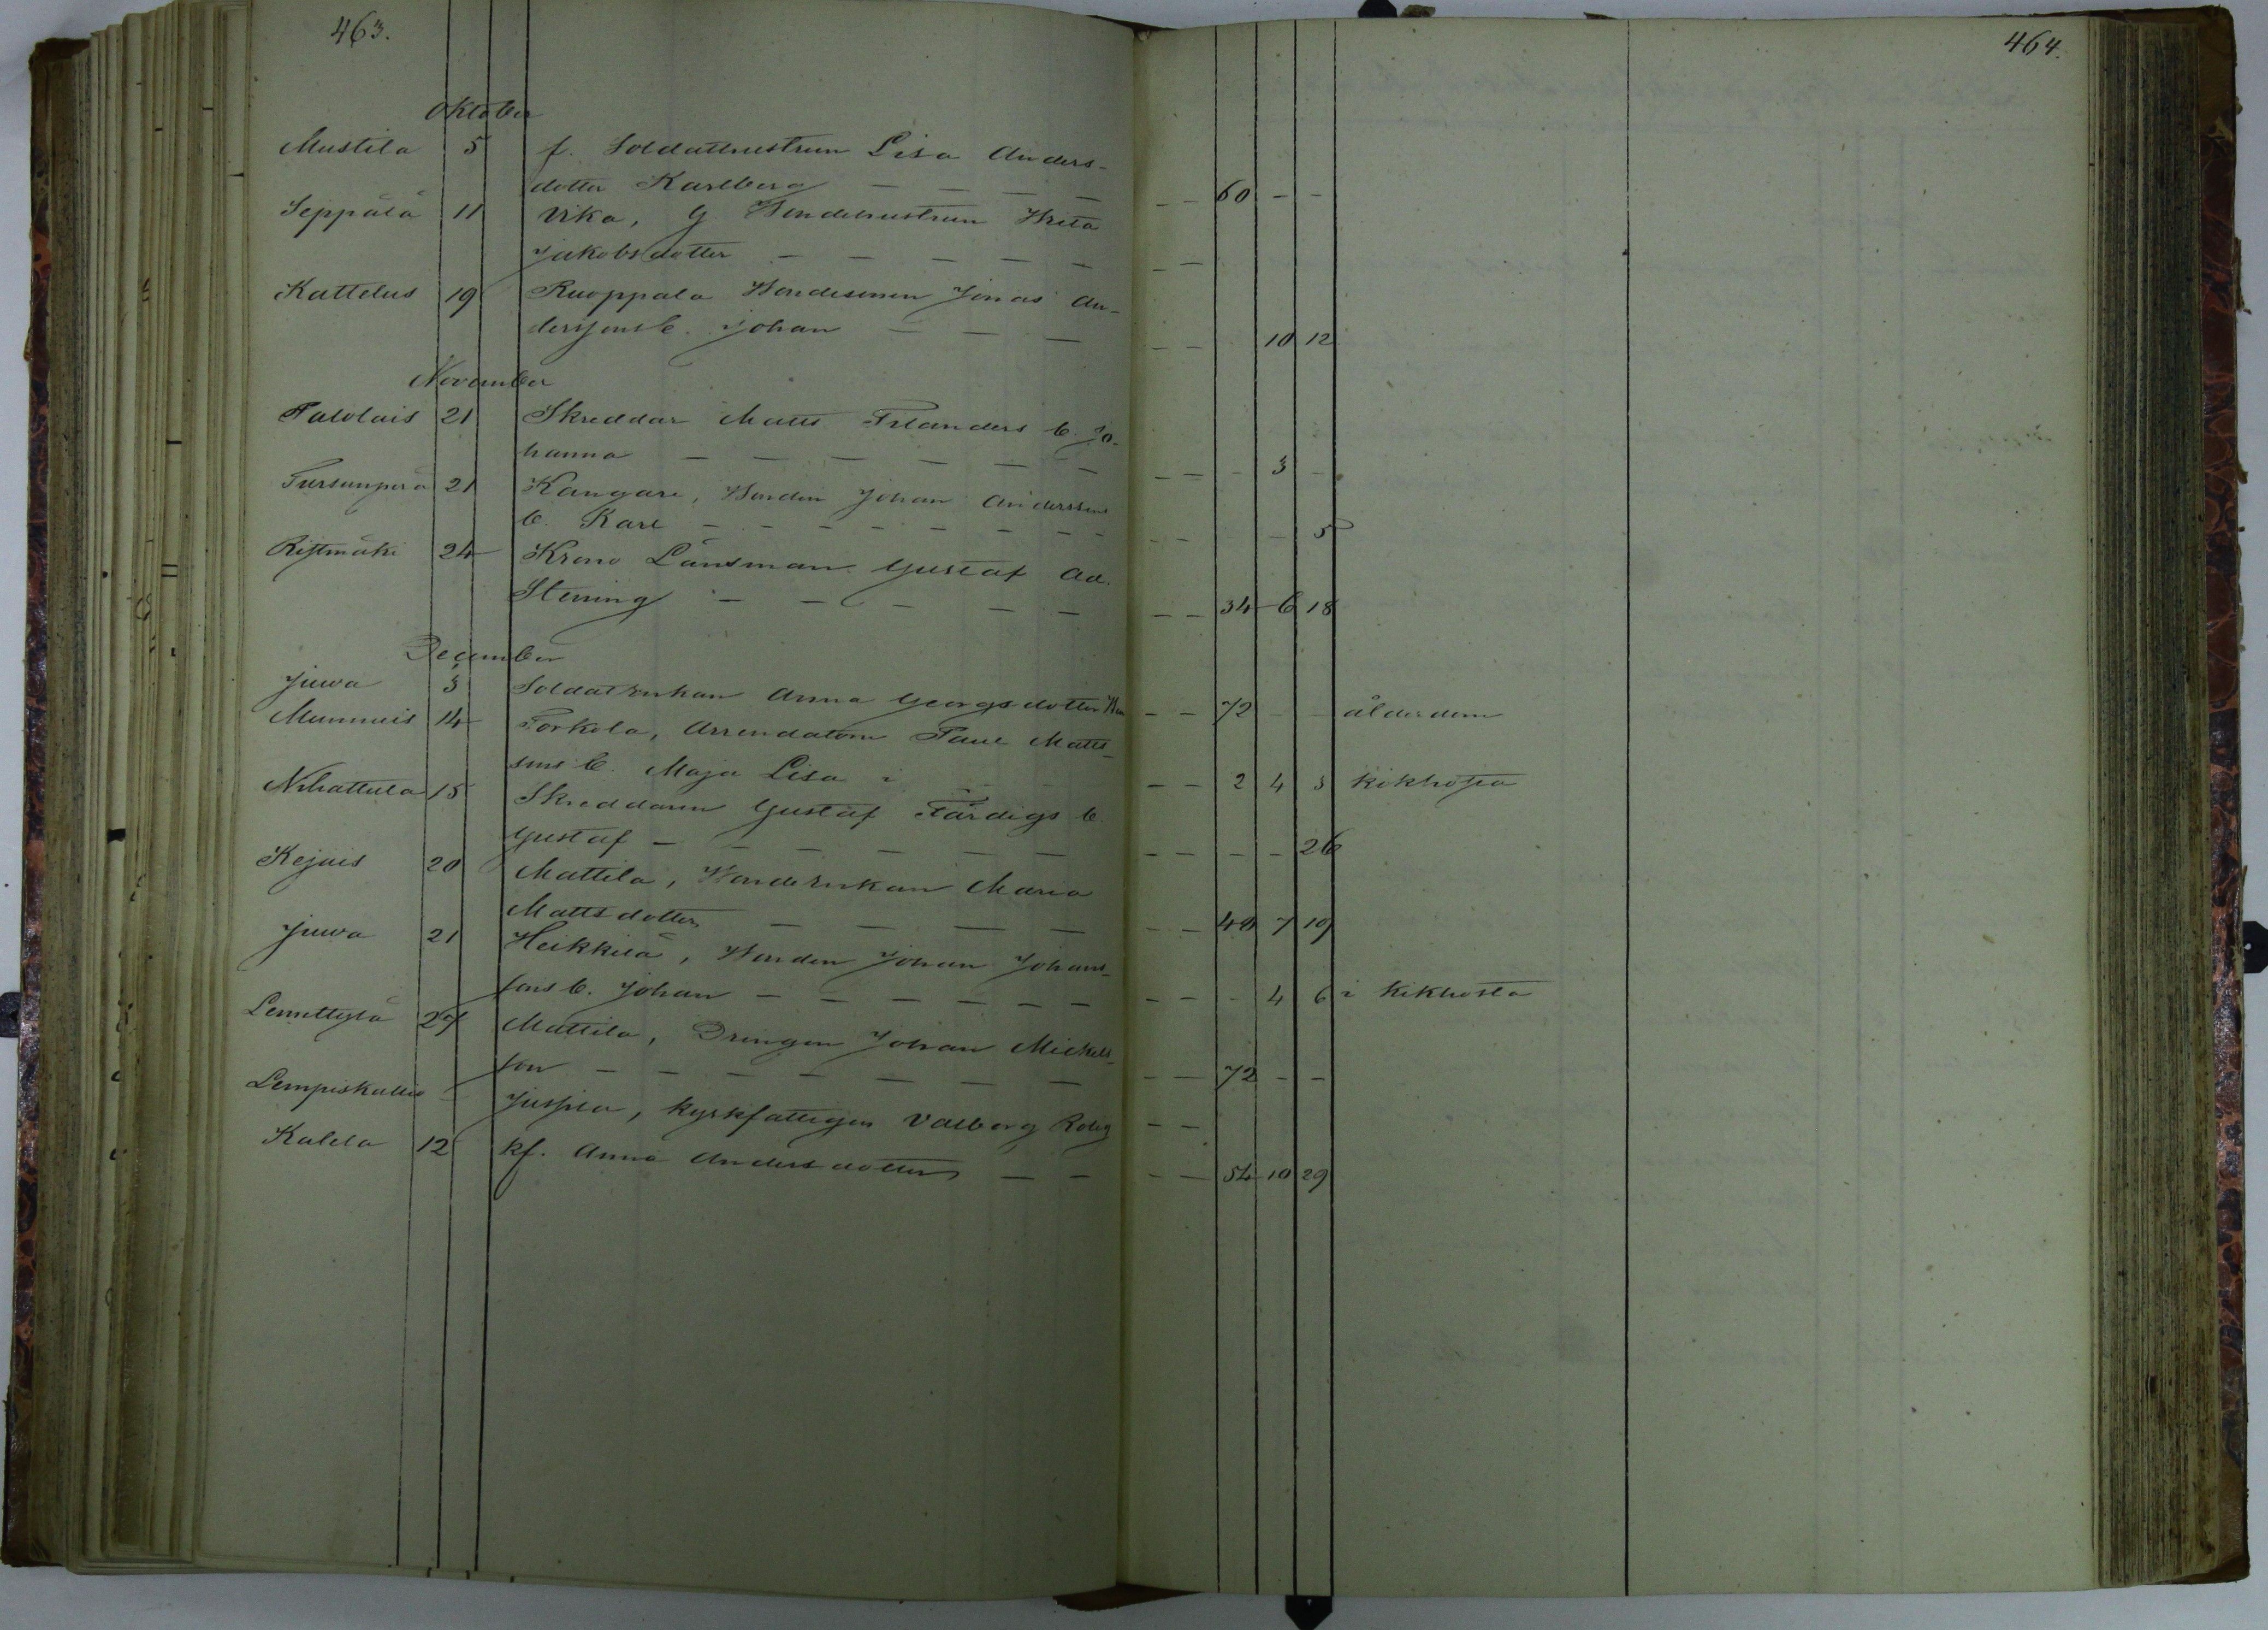 463.
464.
Oktober
Mustila 5 f. Soldathustrun Lisa Anders-
dotter Karlberg — — — — — 60 - -
Seppälä 11 Vika, G. Bondehustrun Brita
Jakobsdotter — — — — — — —
Kattelus 19 Ruoppala Bondesonen Jonas An-
derssons b. Johan — — — — — 10 12
November
Palolais 21 Skreddar Matts Frlanders b. Jo-
hanna — — — — — — — — - 3 -
Tursunperä 21 Kangare, Bonden Johan Anderssons
b. Karl - - - - - - - - - - - 5
Ristmäki 24 Krono Länsman Gustaf Ad.
Stening — — — — — — — 34 6 18
December
Juva 3 Soldatenkan Anna Georgsdotter — — 72 - - ålderdom
Mummis 14 Porkola, Arrendatorn Paul Matts-
sons b. Maja Lisa — — 2 4 3 kikhosta
Nihattula 15 Skreddaren Gustaf Färdigs b.
Gustaf — — — — — — — — - - 26
Kejuis 20 Mattila, Bondeenkan Maria
Mattsdotter — — — — — — 48 7 19
Juva 21 Heikkilä, Bonden Johan Johans-
sons b. Johan — — — — — — — — - 4 6 i kikhosta
Lemettylä 27 Mattila, Drängen Johan Mickels-
son — — — — — — — — 72 - -
Lempiskallio - Jussila, kyrkfattigen Valborg Rolig — —
Kalela 12 kf. Anna Andersdotter — — — — 54 10 29